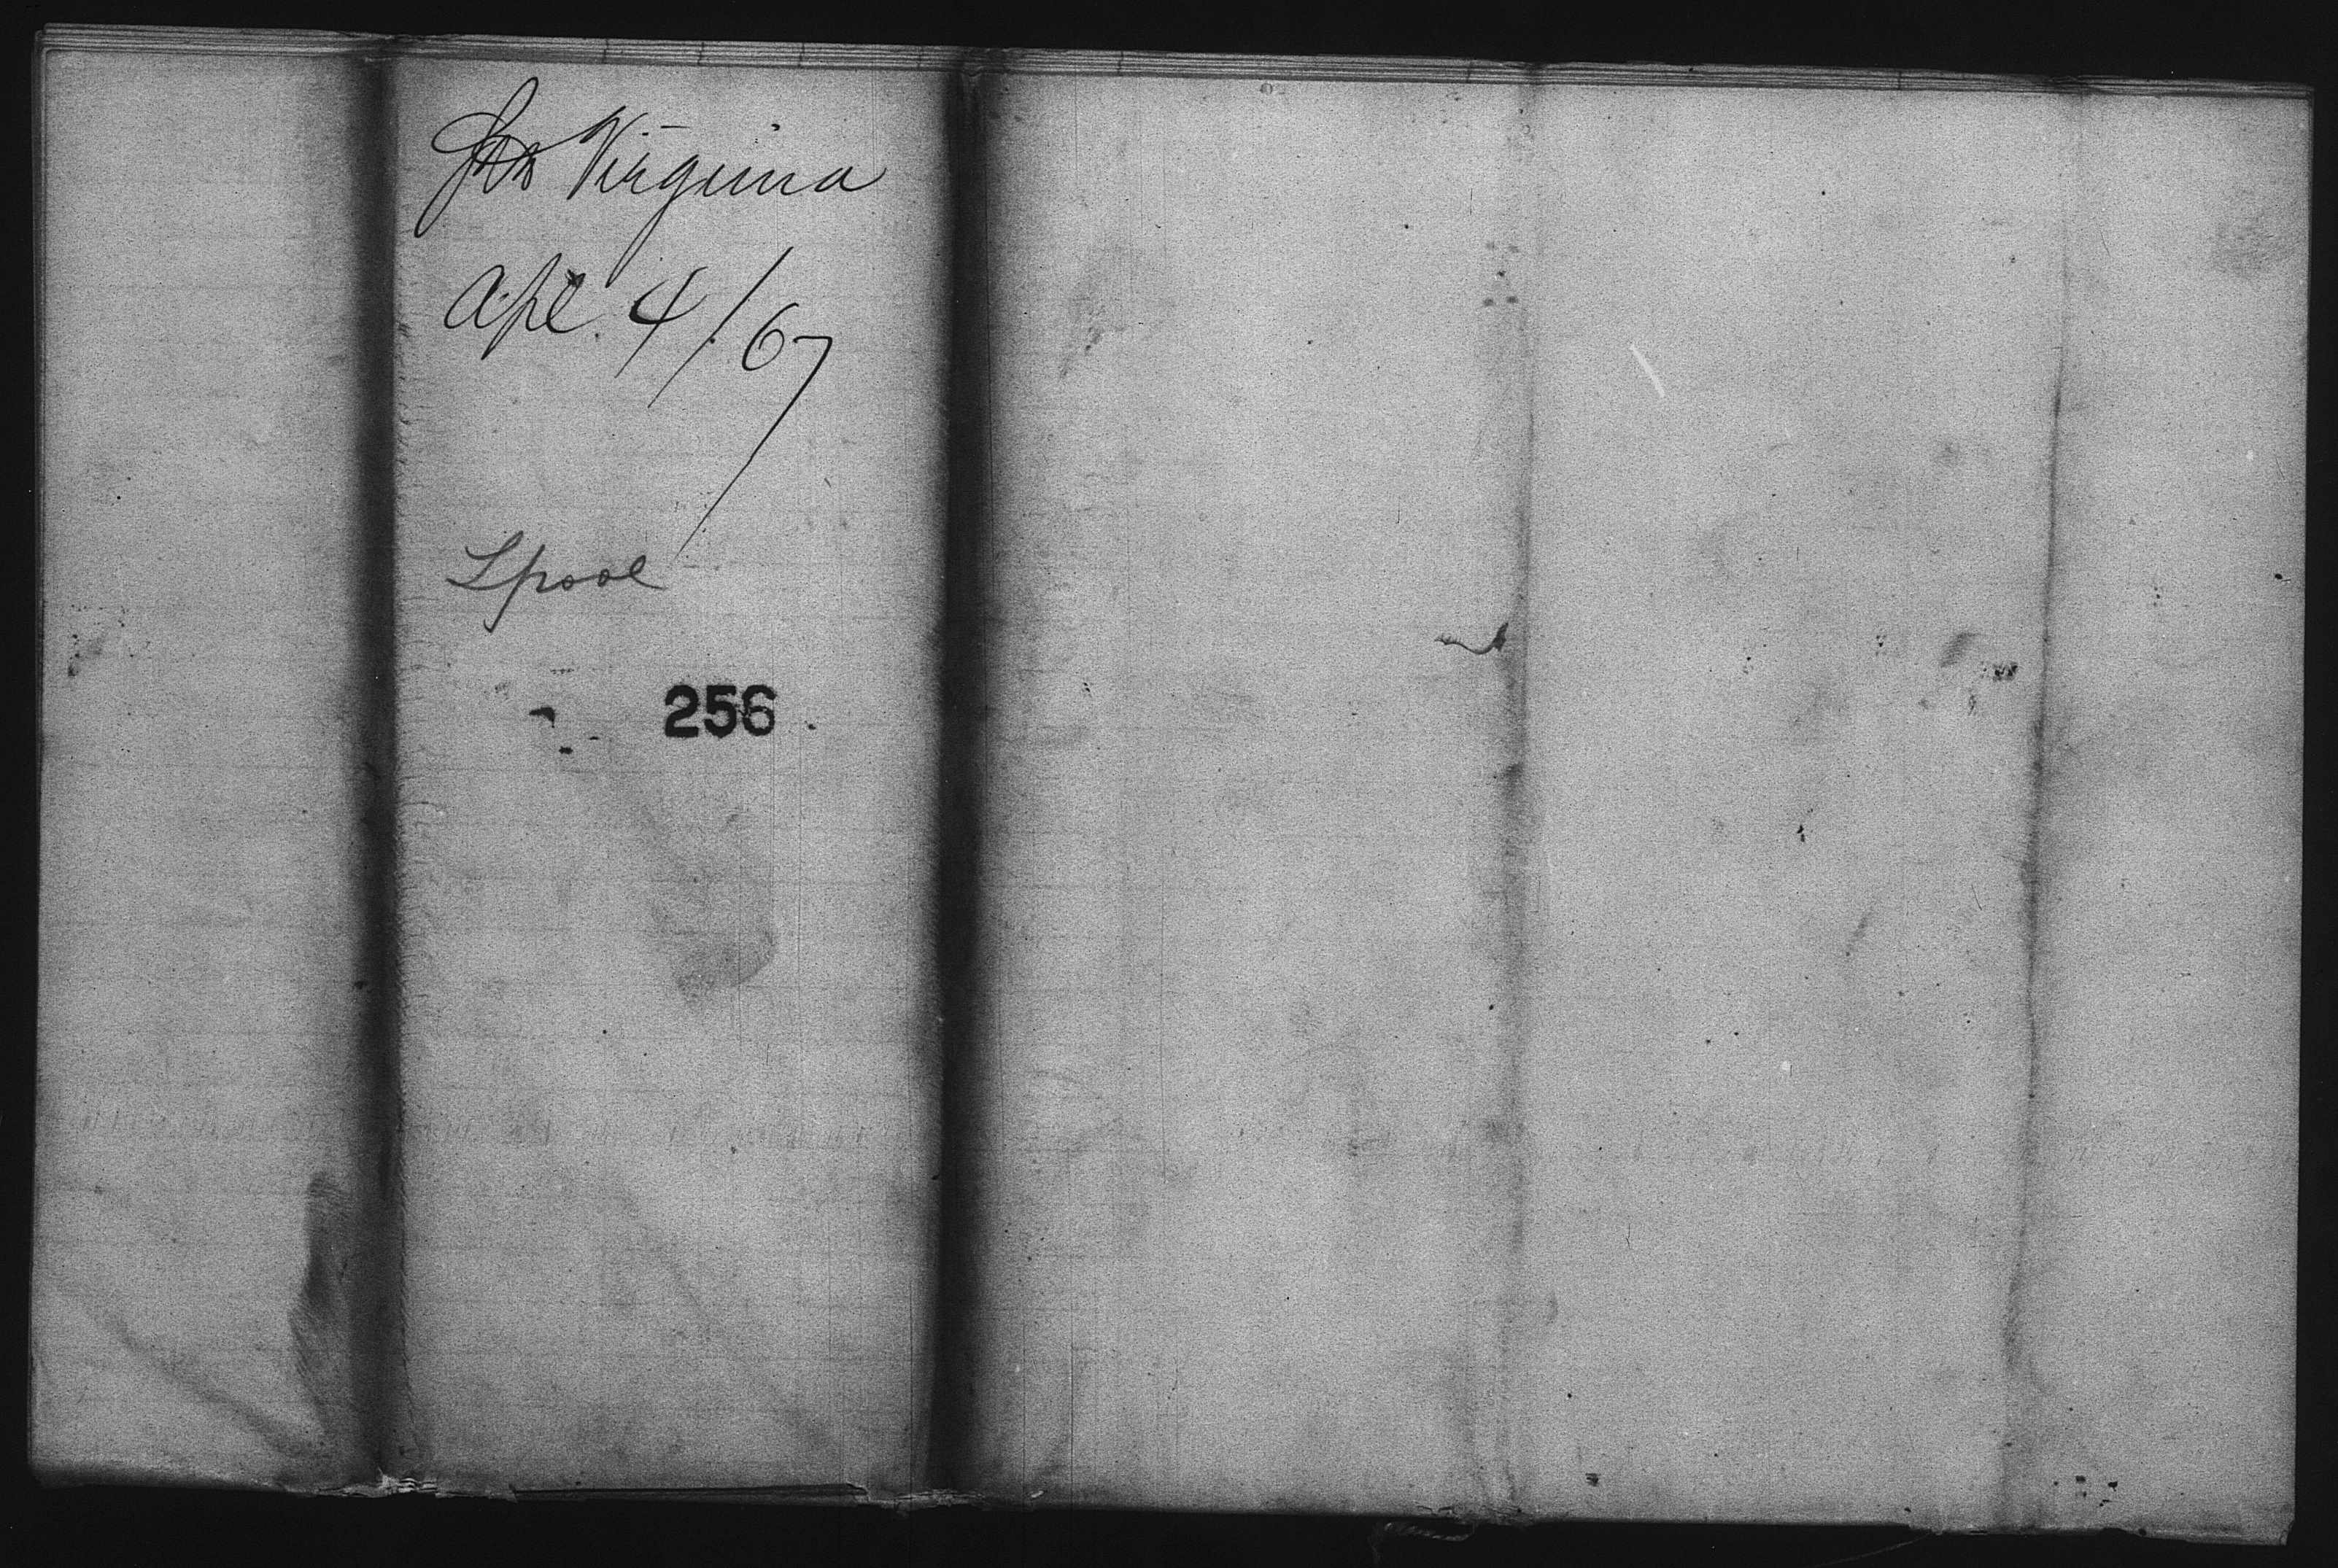 Str Virginia
Apl 4/67
Lpool
256